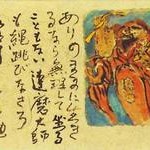 ありのままに生き
るなら無理して坐る
こともない達磨大師
も縄跳びなさる